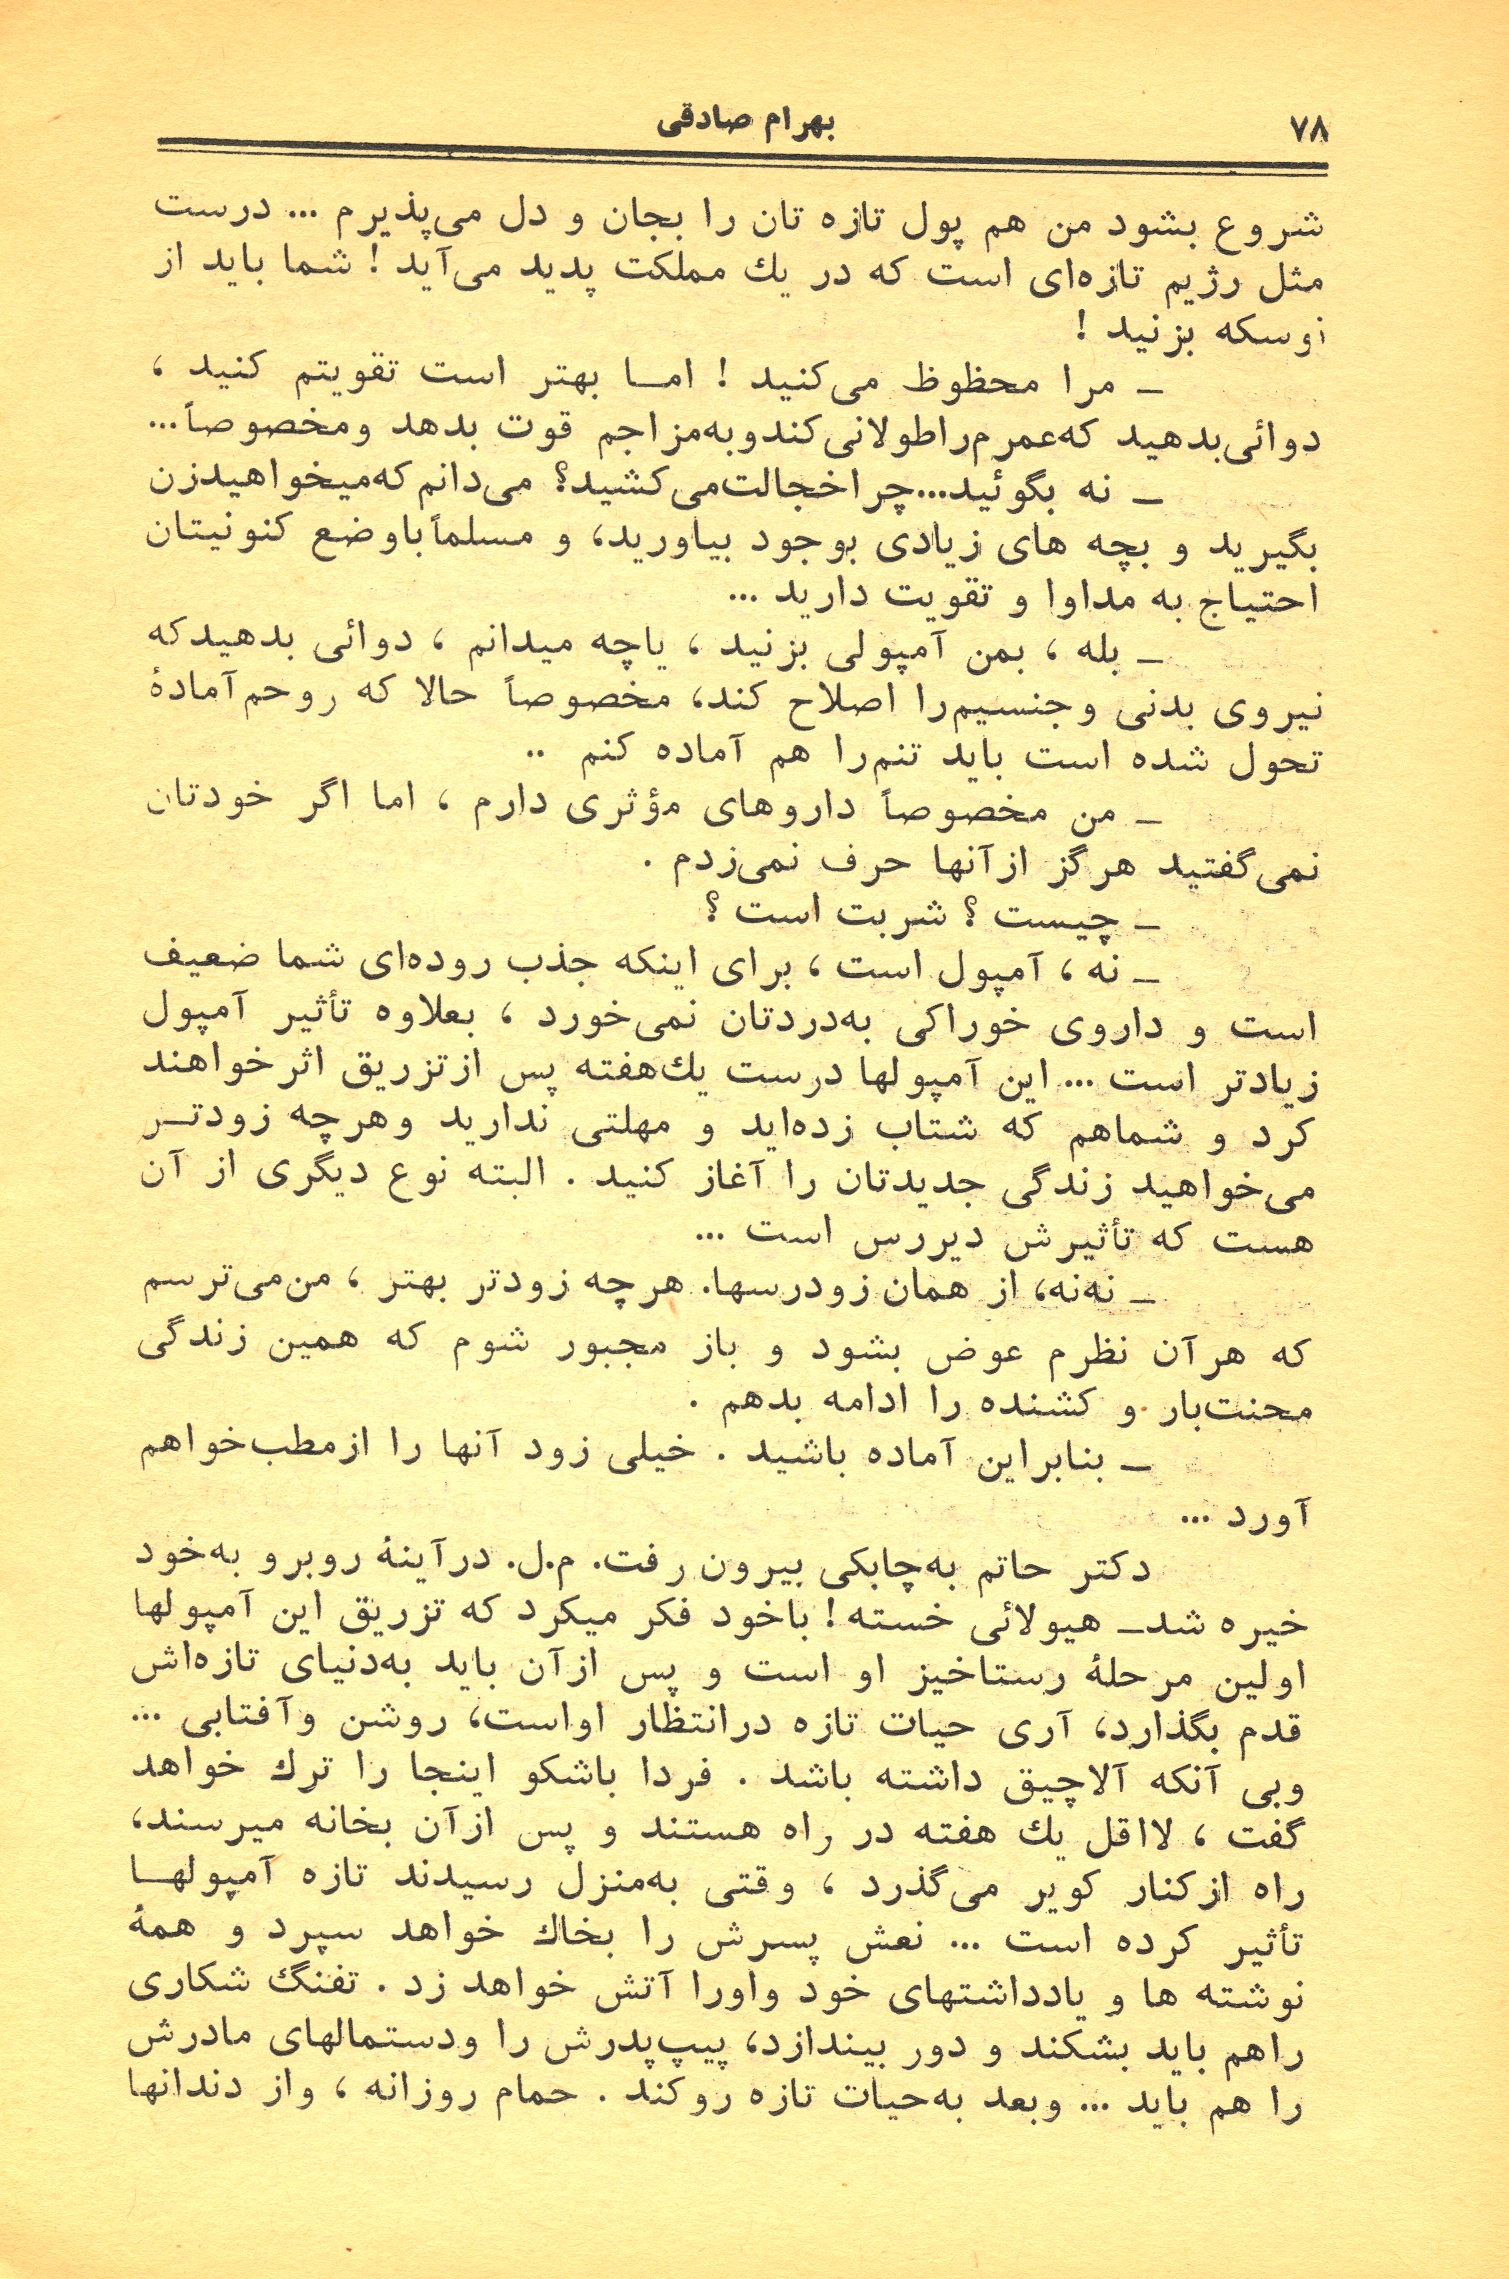 ۷۸
بهرام صادقی
شروع بشود من هم پول تازه تان را بجان و دل می‌پذیرم ... درست
مثل رژیم تازه‌ای است که در یك مملکت پدید می‌آید ! شما باید از
نوسکه بزنید !
ـ مرا محظوظ می‌کنید ! امـا بهتر است تقویتم کنید ،
دوائی‌بدهید که‌عمرم‌راطولانی‌کندوبه‌مزاجم قوت بدهد ومخصوصاً...
ـ نه بگوئید...چراخجالت‌می‌کشید؟ می‌دانم که‌میخواهیدزن
بگیرید و بچه های زیادی بوجود بیاورید، و مسلماً باوضع کنونیتان
احتیاج به مداوا و تقویت دارید ...
ـ بله ، بمن آمپولی بزنید ، یاچه میدانم ، دوائی بدهیدکه
نیروی بدنی وجنسیم‌را اصلاح کند، مخصوصاً حالا که روحم‌آمادهٔ
تحول شده است باید تنم‌را هم آماده کنم ..
ـ من مخصوصاً داروهای مؤثری دارم ، اما اگر خودتان
نمی‌گفتید هرگز ازآنها حرف نمی‌زدم .
ـ چیست ؟ شربت است ؟
ـ نه ، آمپول است ، برای اینکه جذب روده‌ای شما ضعیف
است و داروی خوراکی به‌دردتان نمی‌خورد ، بعلاوه تأثیر آمپول
زیادتر است ... این آمپولها درست یك‌هفته پس ازتزریق اثرخواهند
کرد و شماهم که شتاب زده‌اید و مهلتی ندارید وهرچه زودتـر
می‌خواهید زندگی جدیدتان را آغاز کنید . البته نوع دیگری از آن
هست که تأثیرش دیررس است ...
ـ نه‌نه، از همان زودرسها. هرچه زودتر بهتر ، من‌می‌ترسم
که هرآن نظرم عوض بشود و باز مجبور شوم که همین زندگی
محنت‌بار و کشنده را ادامه بدهم .
ـ بنابراین آماده باشید . خیلی زود آنها را ازمطب‌خواهم
آورد ...
دکتر حاتم به‌چابکی بیرون رفت. م.ل. درآینهٔ روبرو به‌خود
خیره شدـ هیولائی خسته! باخود فکر میکرد که تزریق این آمپولها
اولین مرحلهٔ رستاخیز او است و پس ازآن باید به‌دنیای تازه‌اش
قدم بگذارد، آری حیات تازه درانتظار اواست، روشن وآفتابی ...
وبی آنکه آلاچیق داشته باشد . فردا باشکو اینجا را ترك خواهد
گفت ، لااقل یك هفته در راه هستند و پس ازآن بخانه میرسند،
راه ازکنار کویر می‌گذرد ، وقتی به‌منزل رسیدند تازه آمپولهـا
تأثیر کرده است ... نعش پسرش را بخاك خواهد سپرد و همهٔ
نوشته ها و یادداشتهای خود واورا آتش خواهد زد . تفنگ شکاری
راهم باید بشکند و دور بیندازد، پیپ‌پدرش را ودستمالهای مادرش
را هم باید ... وبعد به‌حیات تازه روکند . حمام روزانه ، واز دندانها